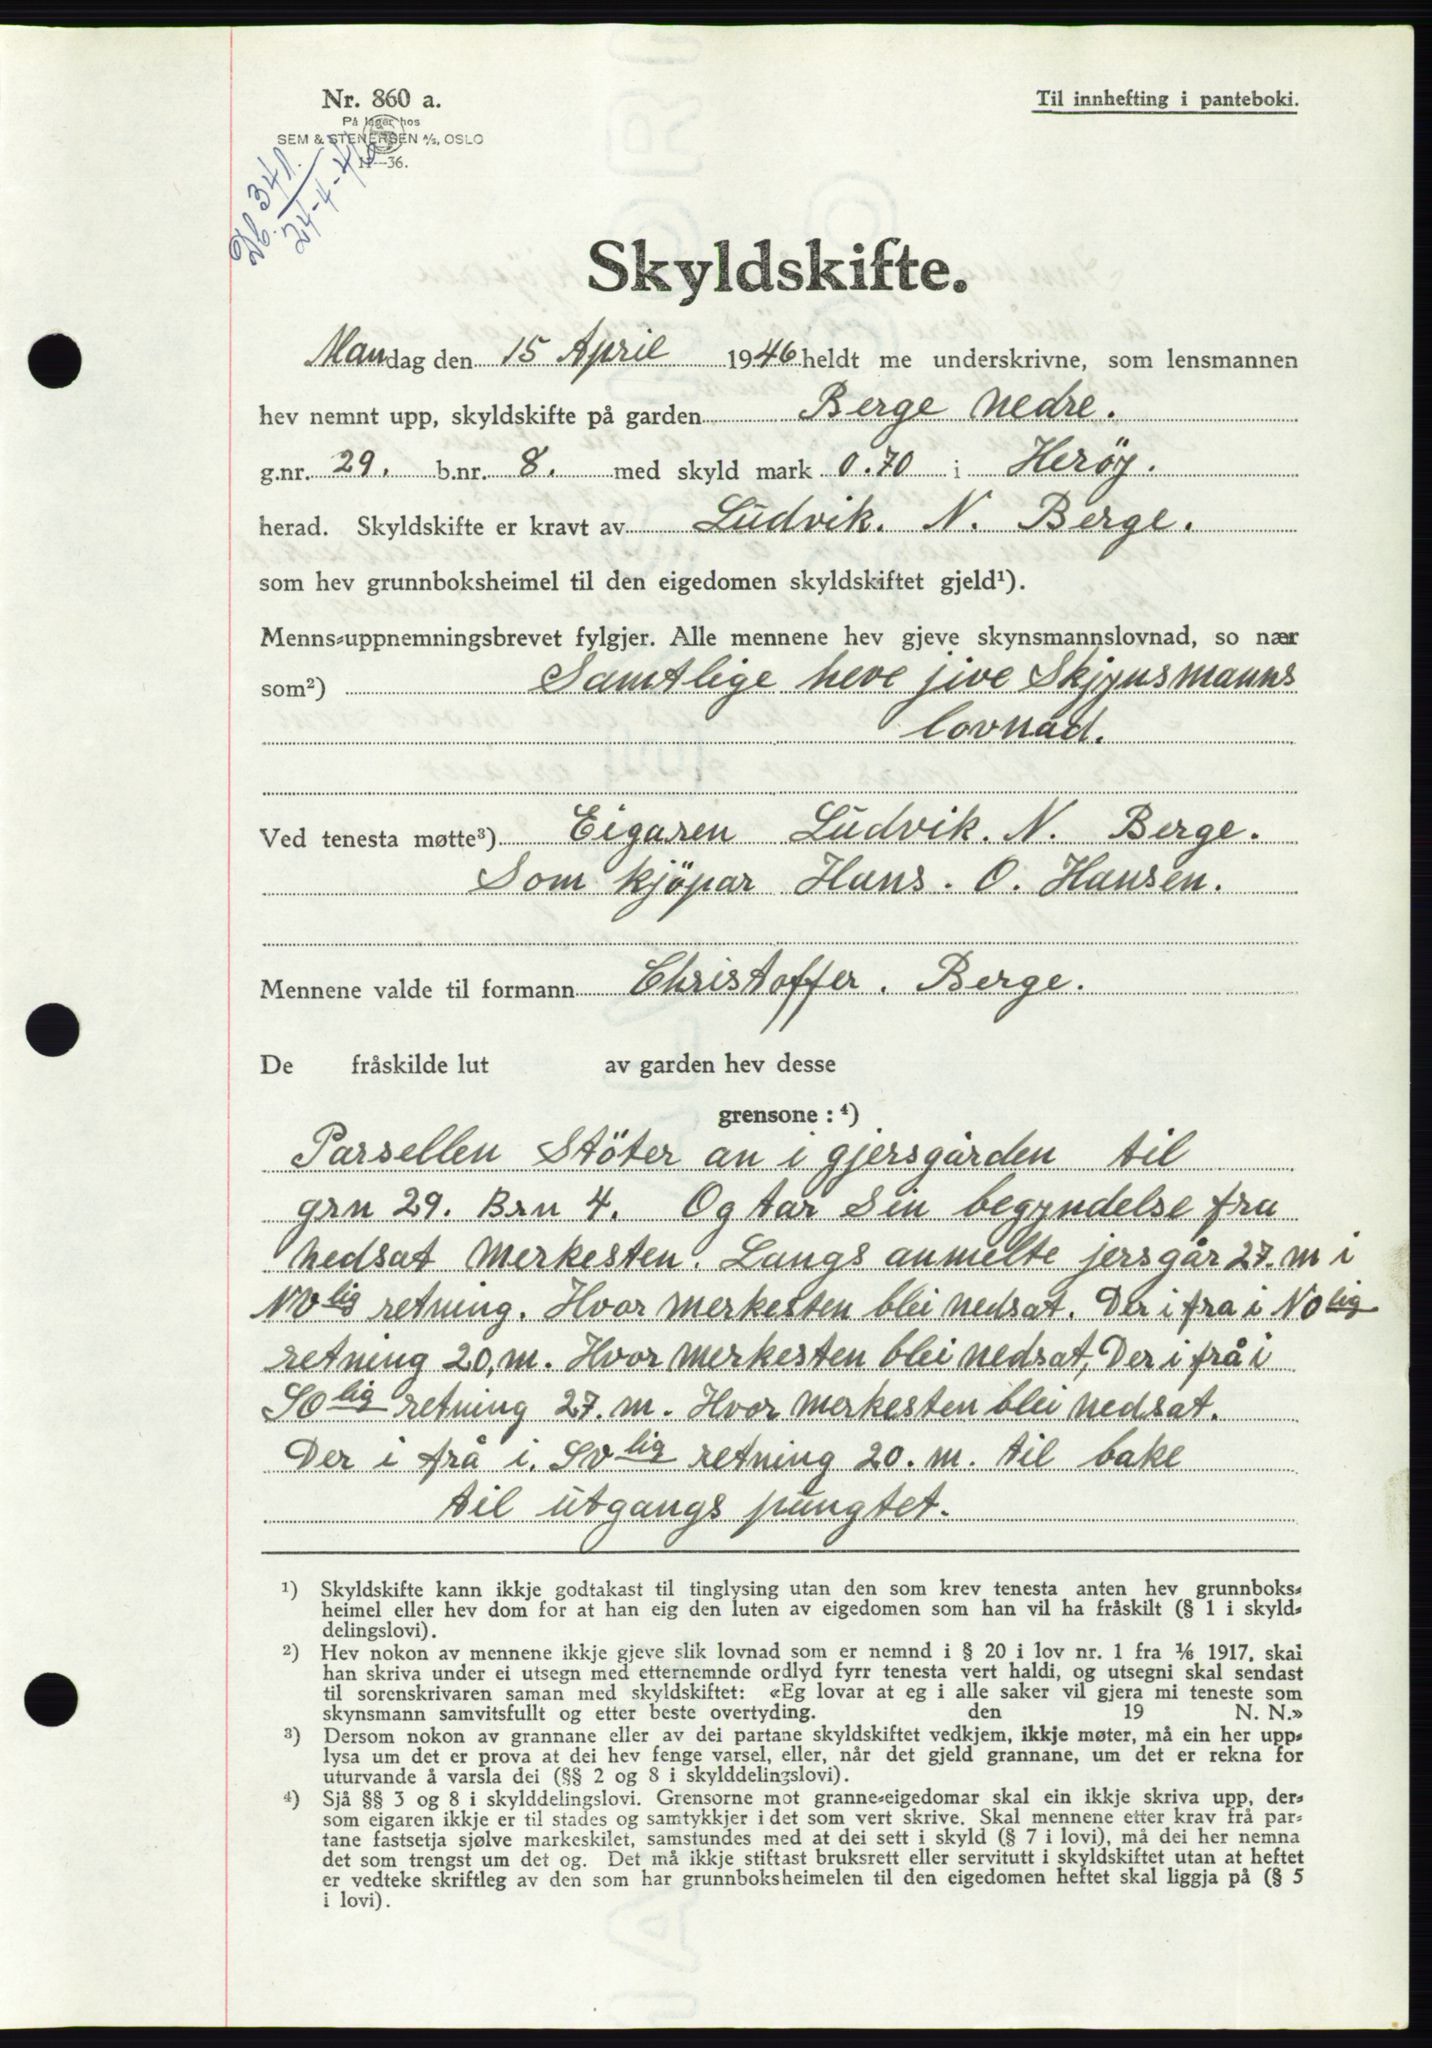 Nr. 860 a.
På lager hos
SEM & STENERSEN A/S, OSLO
11—36.
Til innhefting i panteboki.
Db. 341.
24-4-46
Skyldskifte.
Mandag den 15 April 1946 heldt me underskrivne, som lensmannen
hev nemnt upp, skyldskifte på garden Berge nedre.
g.nr. 29. b.nr. 8. med skyld mark 0.70 i Herøy.
herad. Skyldskifte er kravt av Ludvik. N. Berge.
som hev grunnboksheimel til den eigedomen skyldskiftet gjeld¹).
Menns-uppnemningsbrevet fylgjer. Alle mennene hev gjeve skynsmannslovnad, so nær
som²) Samtlige heve jive Skjynsmanns
lovnad.
Ved tenesta møtte³) Eigaren Ludvik. N. Berge.
Som kjöpar Hans. O. Hansen.
Mennene valde til formann Christoffer. Berge.
De fråskilde lut av garden hev desse
grensone : ⁴)
Parsellen Stöter an i gjersgården til
grn 29. Brn 4. Og tar Sin begyndelse fra
nedsat merkesten. Langs anmelte jersgår 27. m i
NVlig retning. Hvor merkesten blei nedsat. Der i fra i NOlig
retning 20, m. Hvor merkesten blei nedsat, Der i frå i
SOlig retning 27. m. Hvor merkesten blei nedsat.
Der i frå i. SVlig retning 20. m. til bake
til utgangs pungtet.
¹) Skyldskifte kann ikkje godtakast til tinglysing utan den som krev tenesta anten hev grunnboks-
heimel eller hev dom for at han eig den luten av eigedomen som han vil ha fråskilt (§ 1 i skyld-
delingslovi).
²) Hev nokon av mennene ikkje gjeve slik lovnad som er nemnd i § 20 i lov nr. 1 fra ⅛ 1917, skal
han skriva under ei utsegn med etternemnde ordlyd fyrr tenesta vert haldi, og utsegni skal sendast
til sorenskrivaren saman med skyldskiftet: «Eg lovar at eg i alle saker vil gjera mi teneste som
skynsmann samvitsfullt og etter beste overtyding. den 19 N. N.»
³) Dersom nokon av grannane eller av dei partane skyldskiftet vedkjem, ikkje møter, må ein her upp-
lysa um det er prova at dei hev fenge varsel, eller, når det gjeld grannane, um det er rekna for
uturvande å varsla dei (§§ 2 og 8 i skylddelingslovi).
⁴) Sjå §§ 3 og 8 i skylddelingslovi. Grensorne mot granne-eigedomar skal ein ikkje skriva upp, der-
som eigaren ikkje er til stades og samtykkjer i det som vert skrive. Skal mennene etter krav frå par-
tane fastsetja sjølve markeskilet, samstundes med at dei sett i skyld (§ 7 i lovi), må dei her nemna
det som trengst um det og. Det må ikkje stiftast bruksrett eller servitutt i skyldskiftet utan at heftet
er vedteke skriftleg av den som har grunnboksheimelen til den eigedomen heftet skal liggja på (§ 5
i lovi).